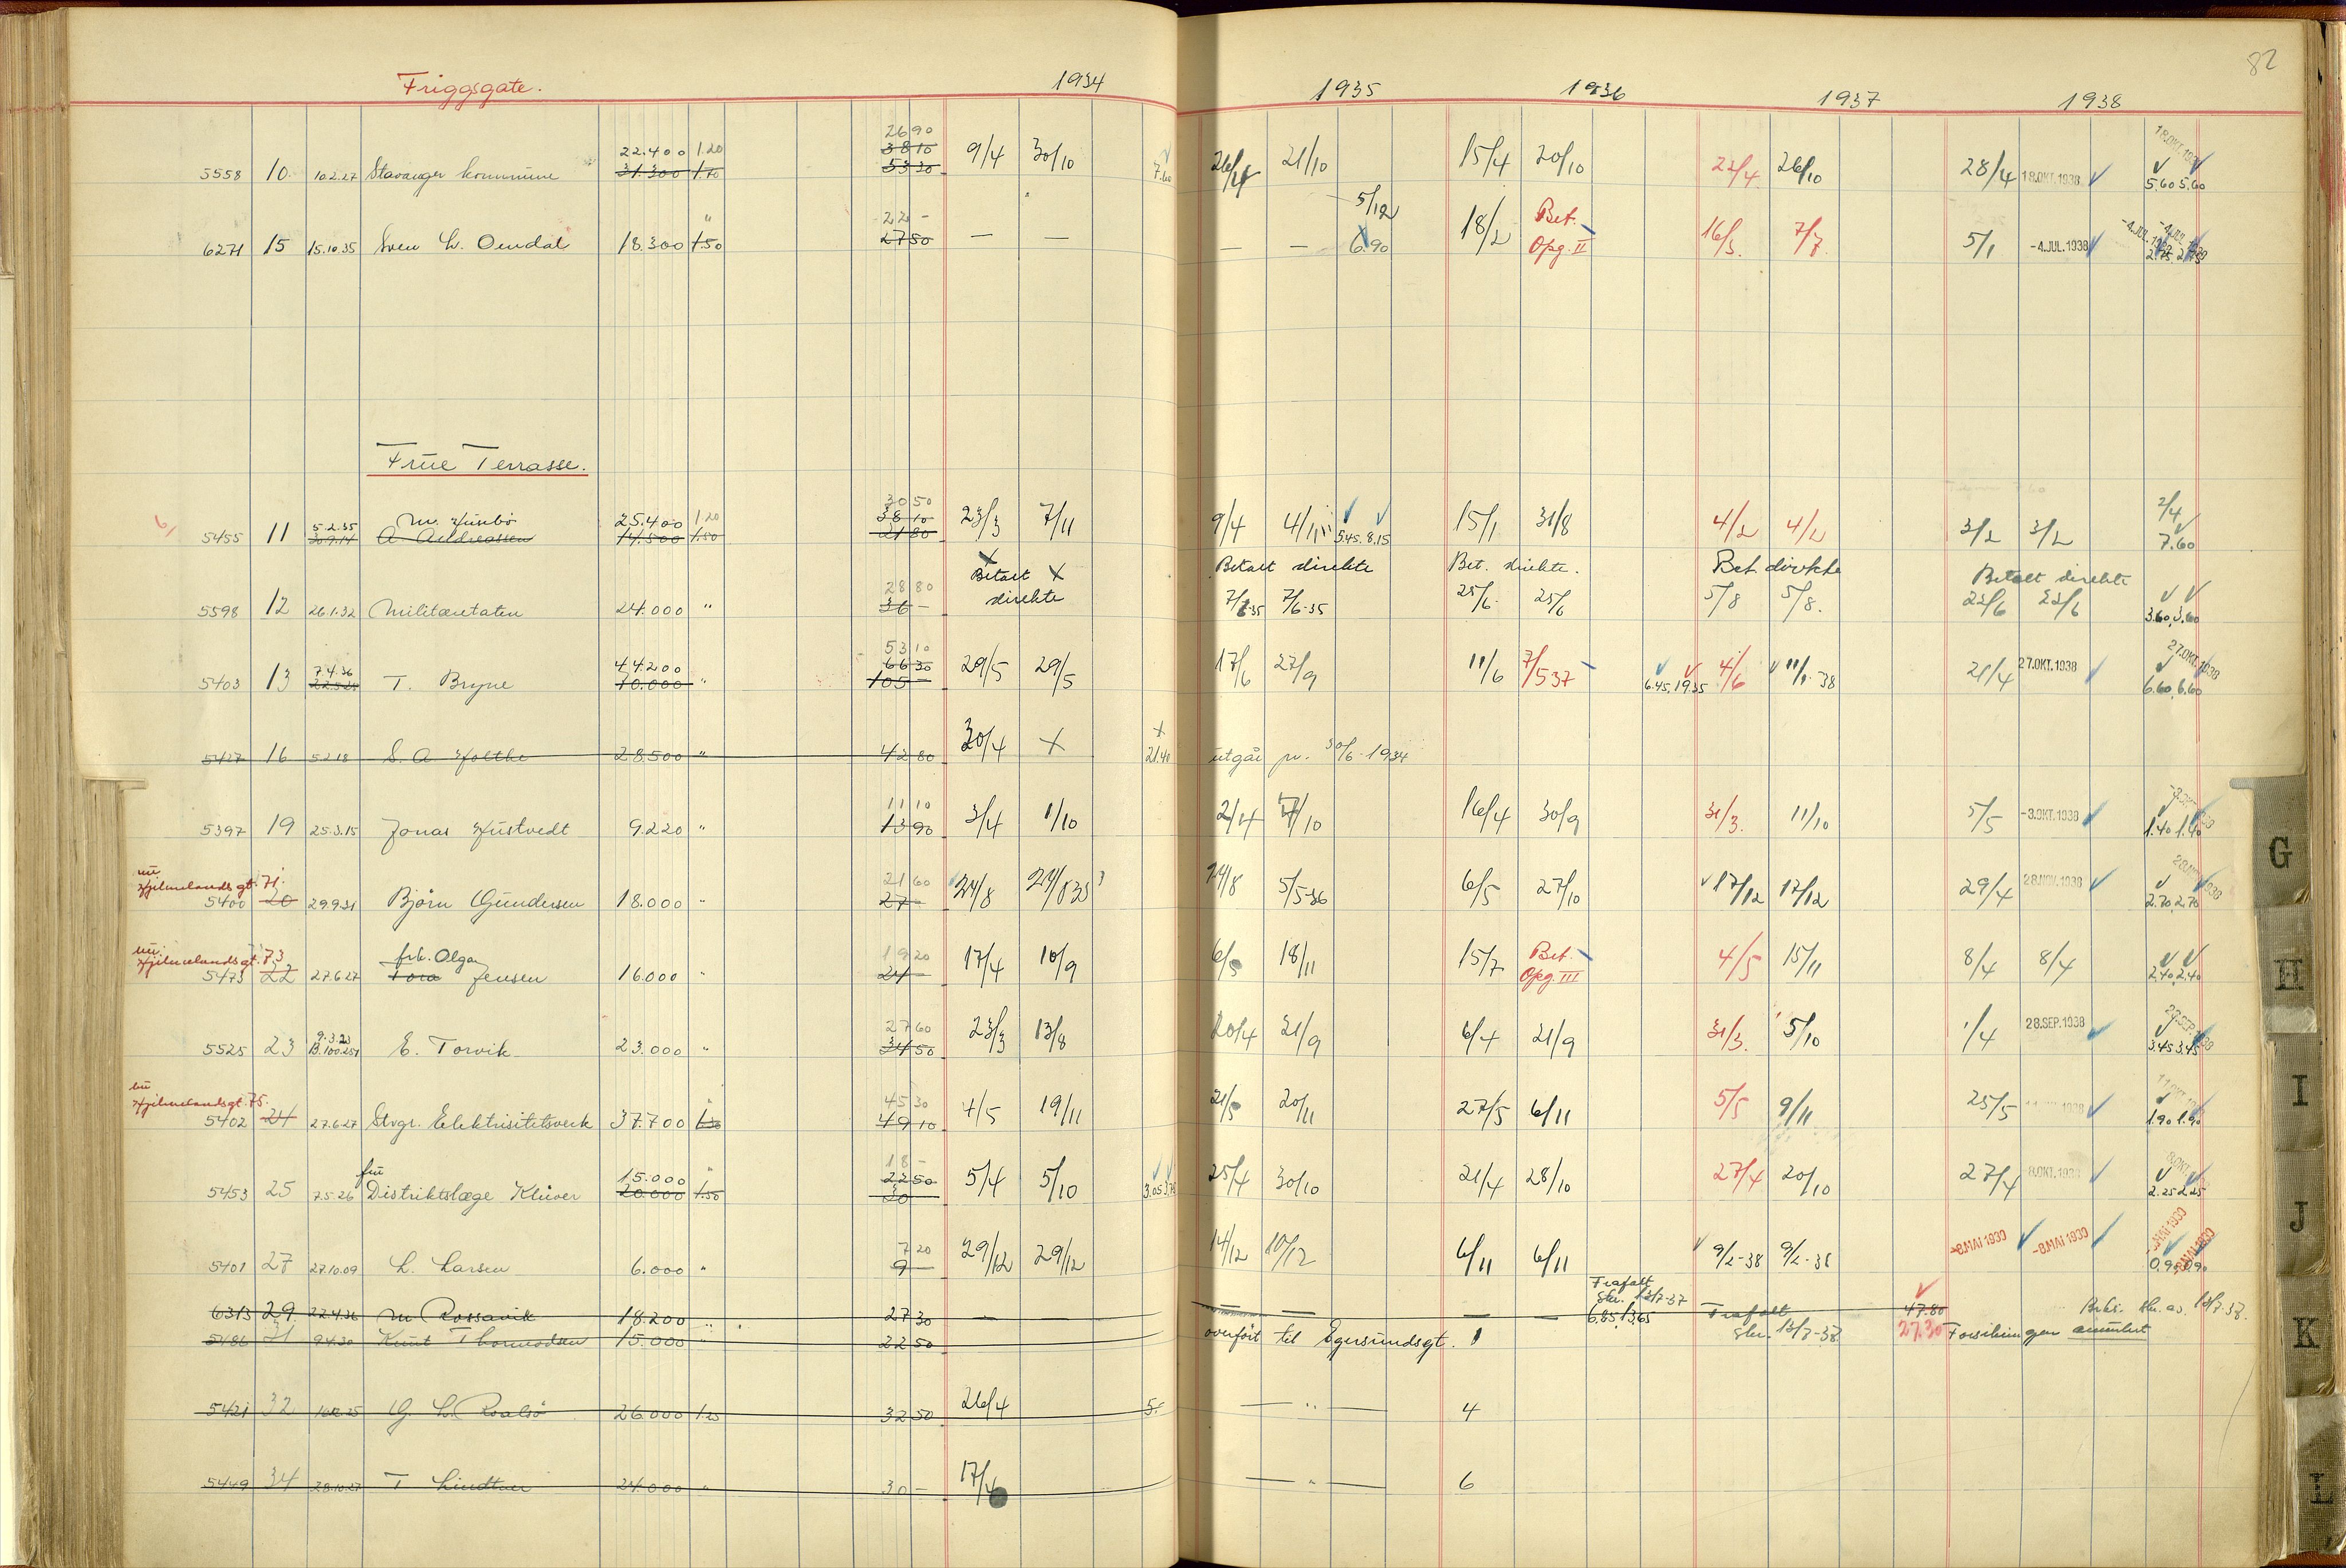 82
Friggsgate. 1934 1935 1936 1937 1938
26 90
22.400 1.20 38 10
5558 10. 10.2.27 Stavanger kommune 31.300 1.70 53 30 9/4 30/10 7.60 26/4 21/10 15/4 20/10 22/4 26/10 28/4 18.OKT.1938 5.60 5.60
5/12
22 - Bet.
6271 15 15.10.35 Sven L. Omdal 18.300 1.50 27 50 — — — — 6.90 18/2 Opg. II 16/3. 7/7. 5/1 -4.JUL.1938 2.75. 2.75
Frue Terrasse.
30 50
5.2.35 25.400 1.20 38 10 2/4
5455 11 30.9.14 A Andreassen 14.500 1.50 21 80 23/3 7/11 9/4 4/11 5.45. 8.15 15/1 31/8 4/2 4/2 3/2 3/2 7.60
Betalt direkte Betalt direkte Bet. direkte. Bet. direkte Betalt direkte
28 80
5598 12 26.1.32 Militæretaten 24.000 " 36 - 7/6-35 7/6-35 25/6 25/6 5/8 5/8. 22/6 22/6 3.60, 3.60
53 10
7.4.36 44.200 66 30
5403 13 22.5.25 T. Bryne 70.000 " 105 - 29/5 29/5 17/6 27/9 11/6 7/5 37 6.45. 19.35 4/6 11/1-38 21/4 27.OKT.1938 6.60, 6.60
5427 16 5.2.18 S. A Holthe 28.500 " 42 80 30/4 X 21.40 utgår pr. 30/6-1934
11 10
5397 19 25.3.15 Jonas Hustvedt 9.220 " 13 90 3/4 1/10 2/4 7/10 16/4 30/9 31/3. 11/10 5/5 -3.OKT.1938 1.40 1.40
nu
Hjelmelandsgt. 71. 21 60
5400 20 29.9.31 Bjørn Gundersen 18.000 " 27 - 24/8 24/8 35 24/8 5/5-36 6/5 27/10 17/12 17/12 29/4 28.NOV.1938 2.70, 2.70
nu
Hjelmelandsgt. 73 frk. Olga 19 20 Bet.
5473 22 27.6.27 Tora Jensen 16.000 " 24 - 17/4 10/9 6/5 18/11 15/7 Opg. III 4/5 15/11 8/4 8/4 2.40, 2.40
9.3.23 27 60
5525 23 B.100.251 E. Torvik 23.000 " 34 50 23/3 13/8 20/4 21/9 6/4 21/9 31/3. 5/10 1/4 28.SEP.1938 3.45 3.45
nu
Hjelmelandsgt. 75. 45 30
5402 24 27.6.27 Stvgr. Elektrisitetsverk 37.700 1.30 49 10 4/5 19/11 21/5 20/11 27/5 6/11 5/5 9/11 25/5 1.90 1.90
fru 15.000 18 -
22 50
5453 25 7.5.26 Distriktslæge Klüver 20.000 1.50 30 5/4 5/10 3.05 3.75 25/4 30/10 21/4 28/10 27/4 20/10 27/4 8.OKT.1938 2.25 2.25
7 20
5401 27 27.10.09 L. Larsen 6.000 " 9 - 29/12 29/12 14/12 10/12 6/11 6/11 9/2-38 9/2-38 -8.MAI 1939 -8.MAI 1939 0.90, 0.90
Frafalt
skr. 13/7-37
6313 29. 22.4.36 M Rossavik 18.200 " 27 30 — — — — — 6.85, 13.65 Frafalt 47.80 skr. av. 13/7-37.
5486 31 9.4.30 Knut Thormodsen 15.000 " 22 50 overført til Egersundsgt. 1 skr. 13/7-37. 27.30 Forsikringen annulert
5421 32 G. L. Roalsø 26.000 1.25 32 50 26/4 5.- — " — 4
5449 34 28.10.27 T Lindtner 24.000 " 30 - 17/4 — " — 6
G
H
I
J
K
L